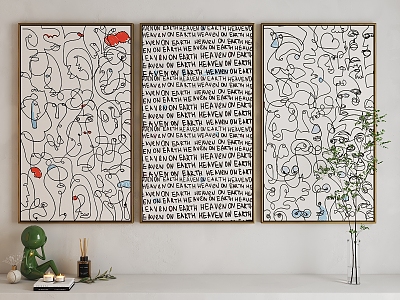 HEAVEN ON EARTH HEAVEN ON EARTH
EAVEN ON EARTH HEAVEN ON EARTH HEAVE
ON EARTH HEAVEN ON EARTH HEAVEN
EN ON EARTH HEAVEN ON EARTH HEAVE
EAVEN ON EARTH HEAVEN ON EARTH
HEAVEN ON EARTH HEAVEN ON EARTH
VEN ON EARTH HEAVEN ON EARTH HEAVEN O
EAVEN ON EARTH HEAVEN ON EARTH
HEAVEN ON EARTH HEAVEN ON EARTH
EN ON EARTH HEAVEN ON EARTH HEAVE
EAVEN ON EARTH HEAVEN ON EARTH
HEAVEN ON EARTH HEAVEN ON EARTH
EAVEN ON EARTH HEAVEN ON EARTH
EN ON EARTH HEAVEN ON EARTH HEAVE
EAVEN ON EARTH HEAVEN ON EARTH
VEN ON EARTH HEAVEN ON EARTH HEAVEN O
HEAVEN ON EARTH HEAVEN ON EARTH
EN ON EARTH HEAVEN ON EARTH HEAVE
EAVEN ON EARTH HEAVEN ON EARTH